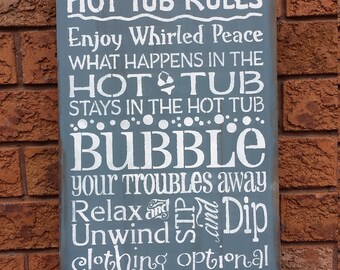 HOT TUB RULES
Enjoy Whirled Peace
WHAT HAPPENS IN THE
HOT TUB
STAYS IN THE HOT TUB
BUBBLE
your TROUBLES away
Relax and
Unwind
SIP and Dip
clothing optional